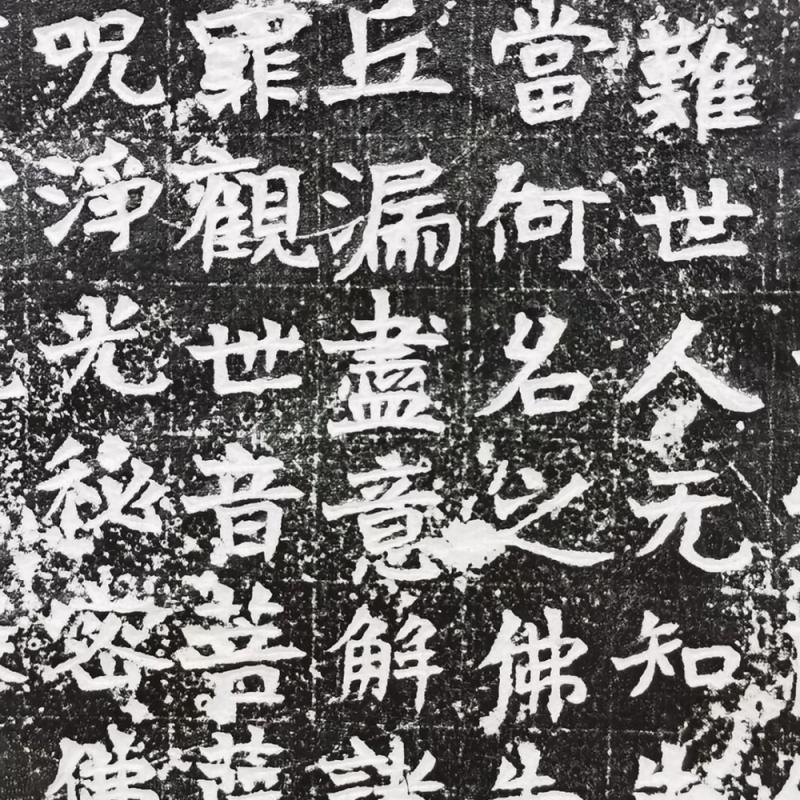 難世人无知
當何名之佛
丘漏盡意解諸
罪觀世音菩薩
呪淨光秘密佛